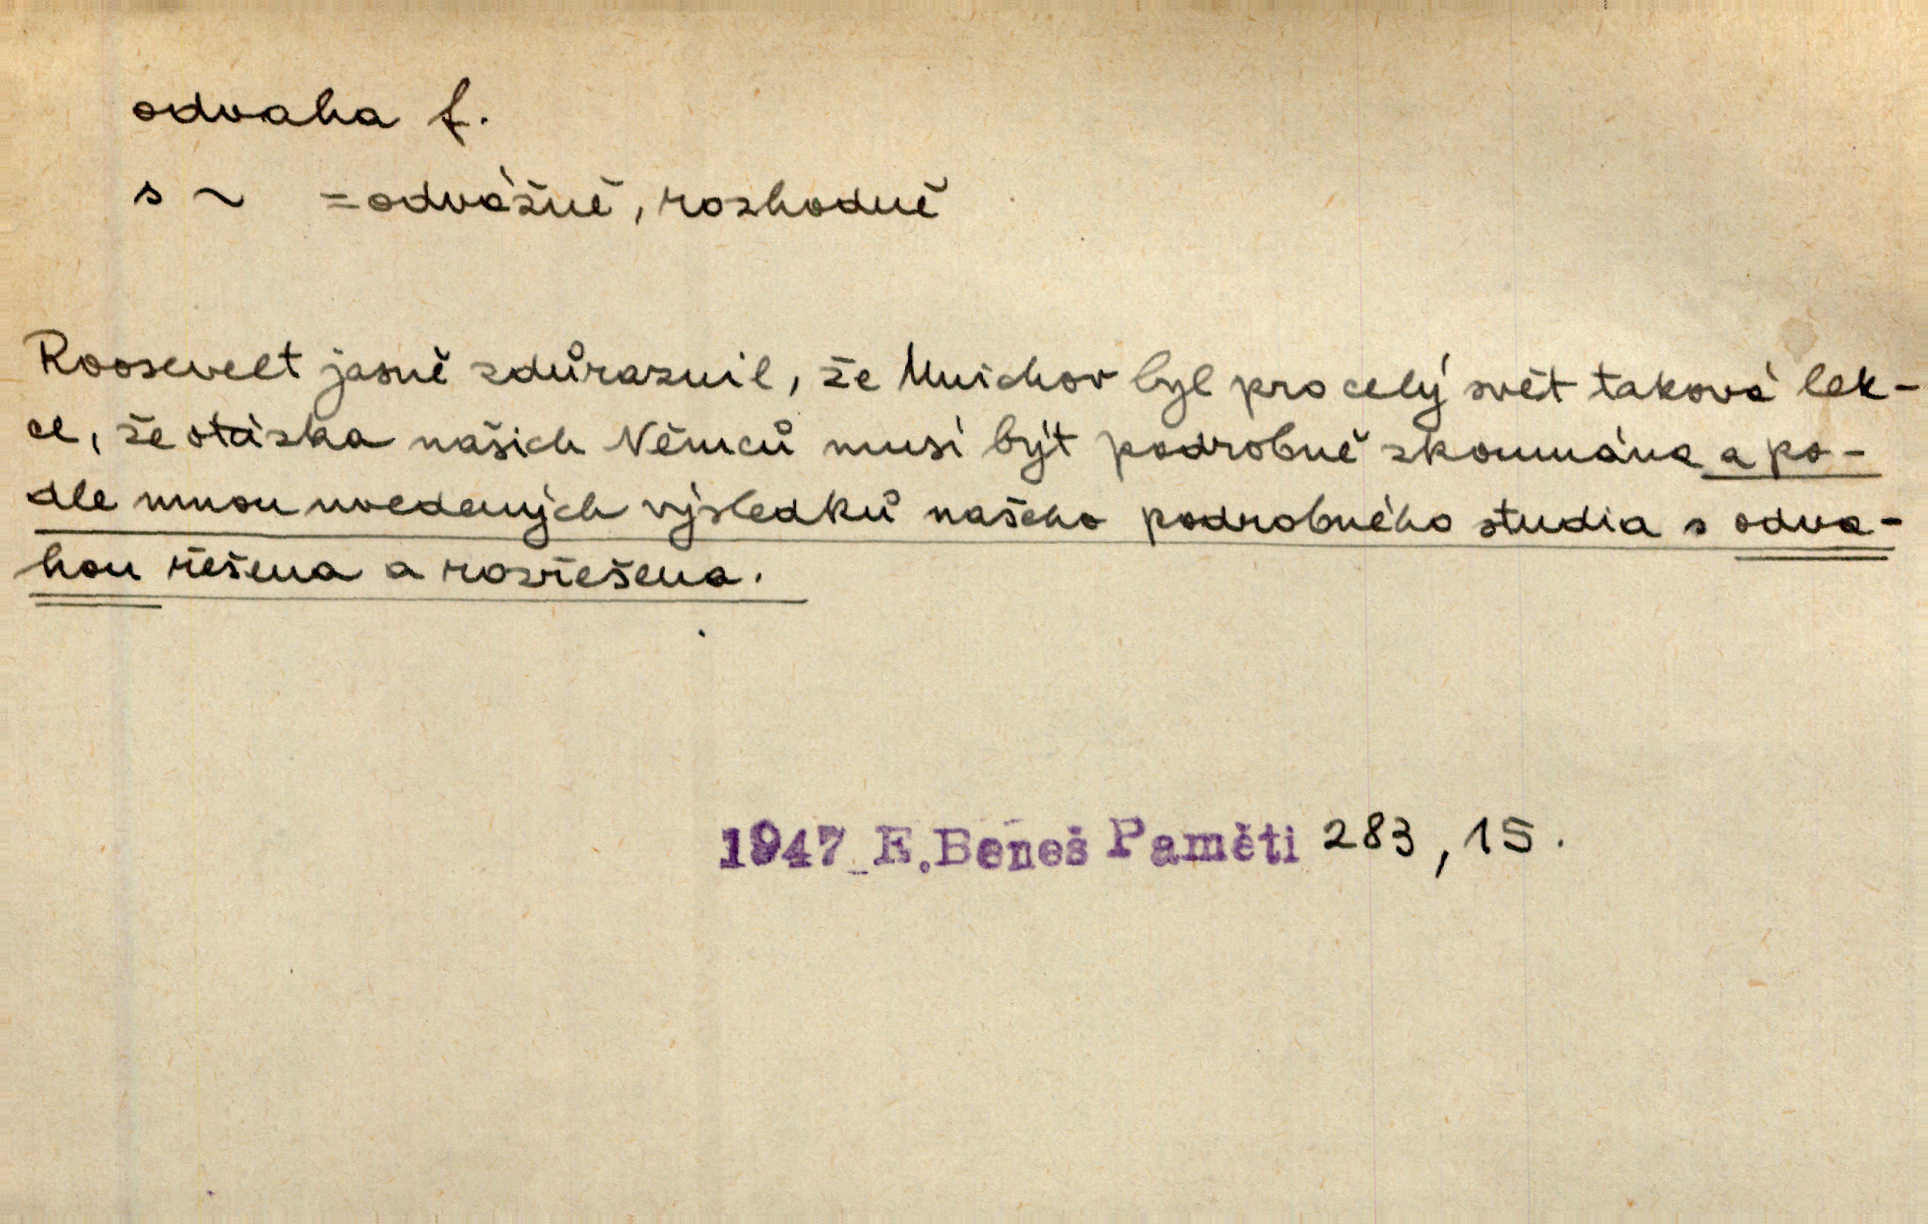 odvaha f.
s ~ = odvážně, rozhodně
Roosevelt jasně zdůraznil, že Mnichov byl pro celý svět taková lek-
ce, že otázka našich Němců musí být podrobně zkoumána a po-
dle mnou uvedených výsledků našeho podrobného studia s odva-
hou řešena a rozřešena.
1947 E. Beneš Paměti 283, 15.